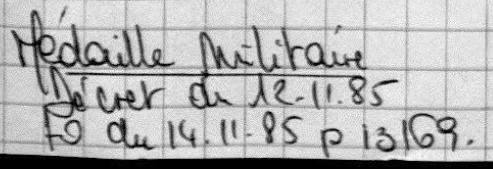 Médaille Militaire
Décret du 12-11.85
FO du 14.11-85 p 13169.